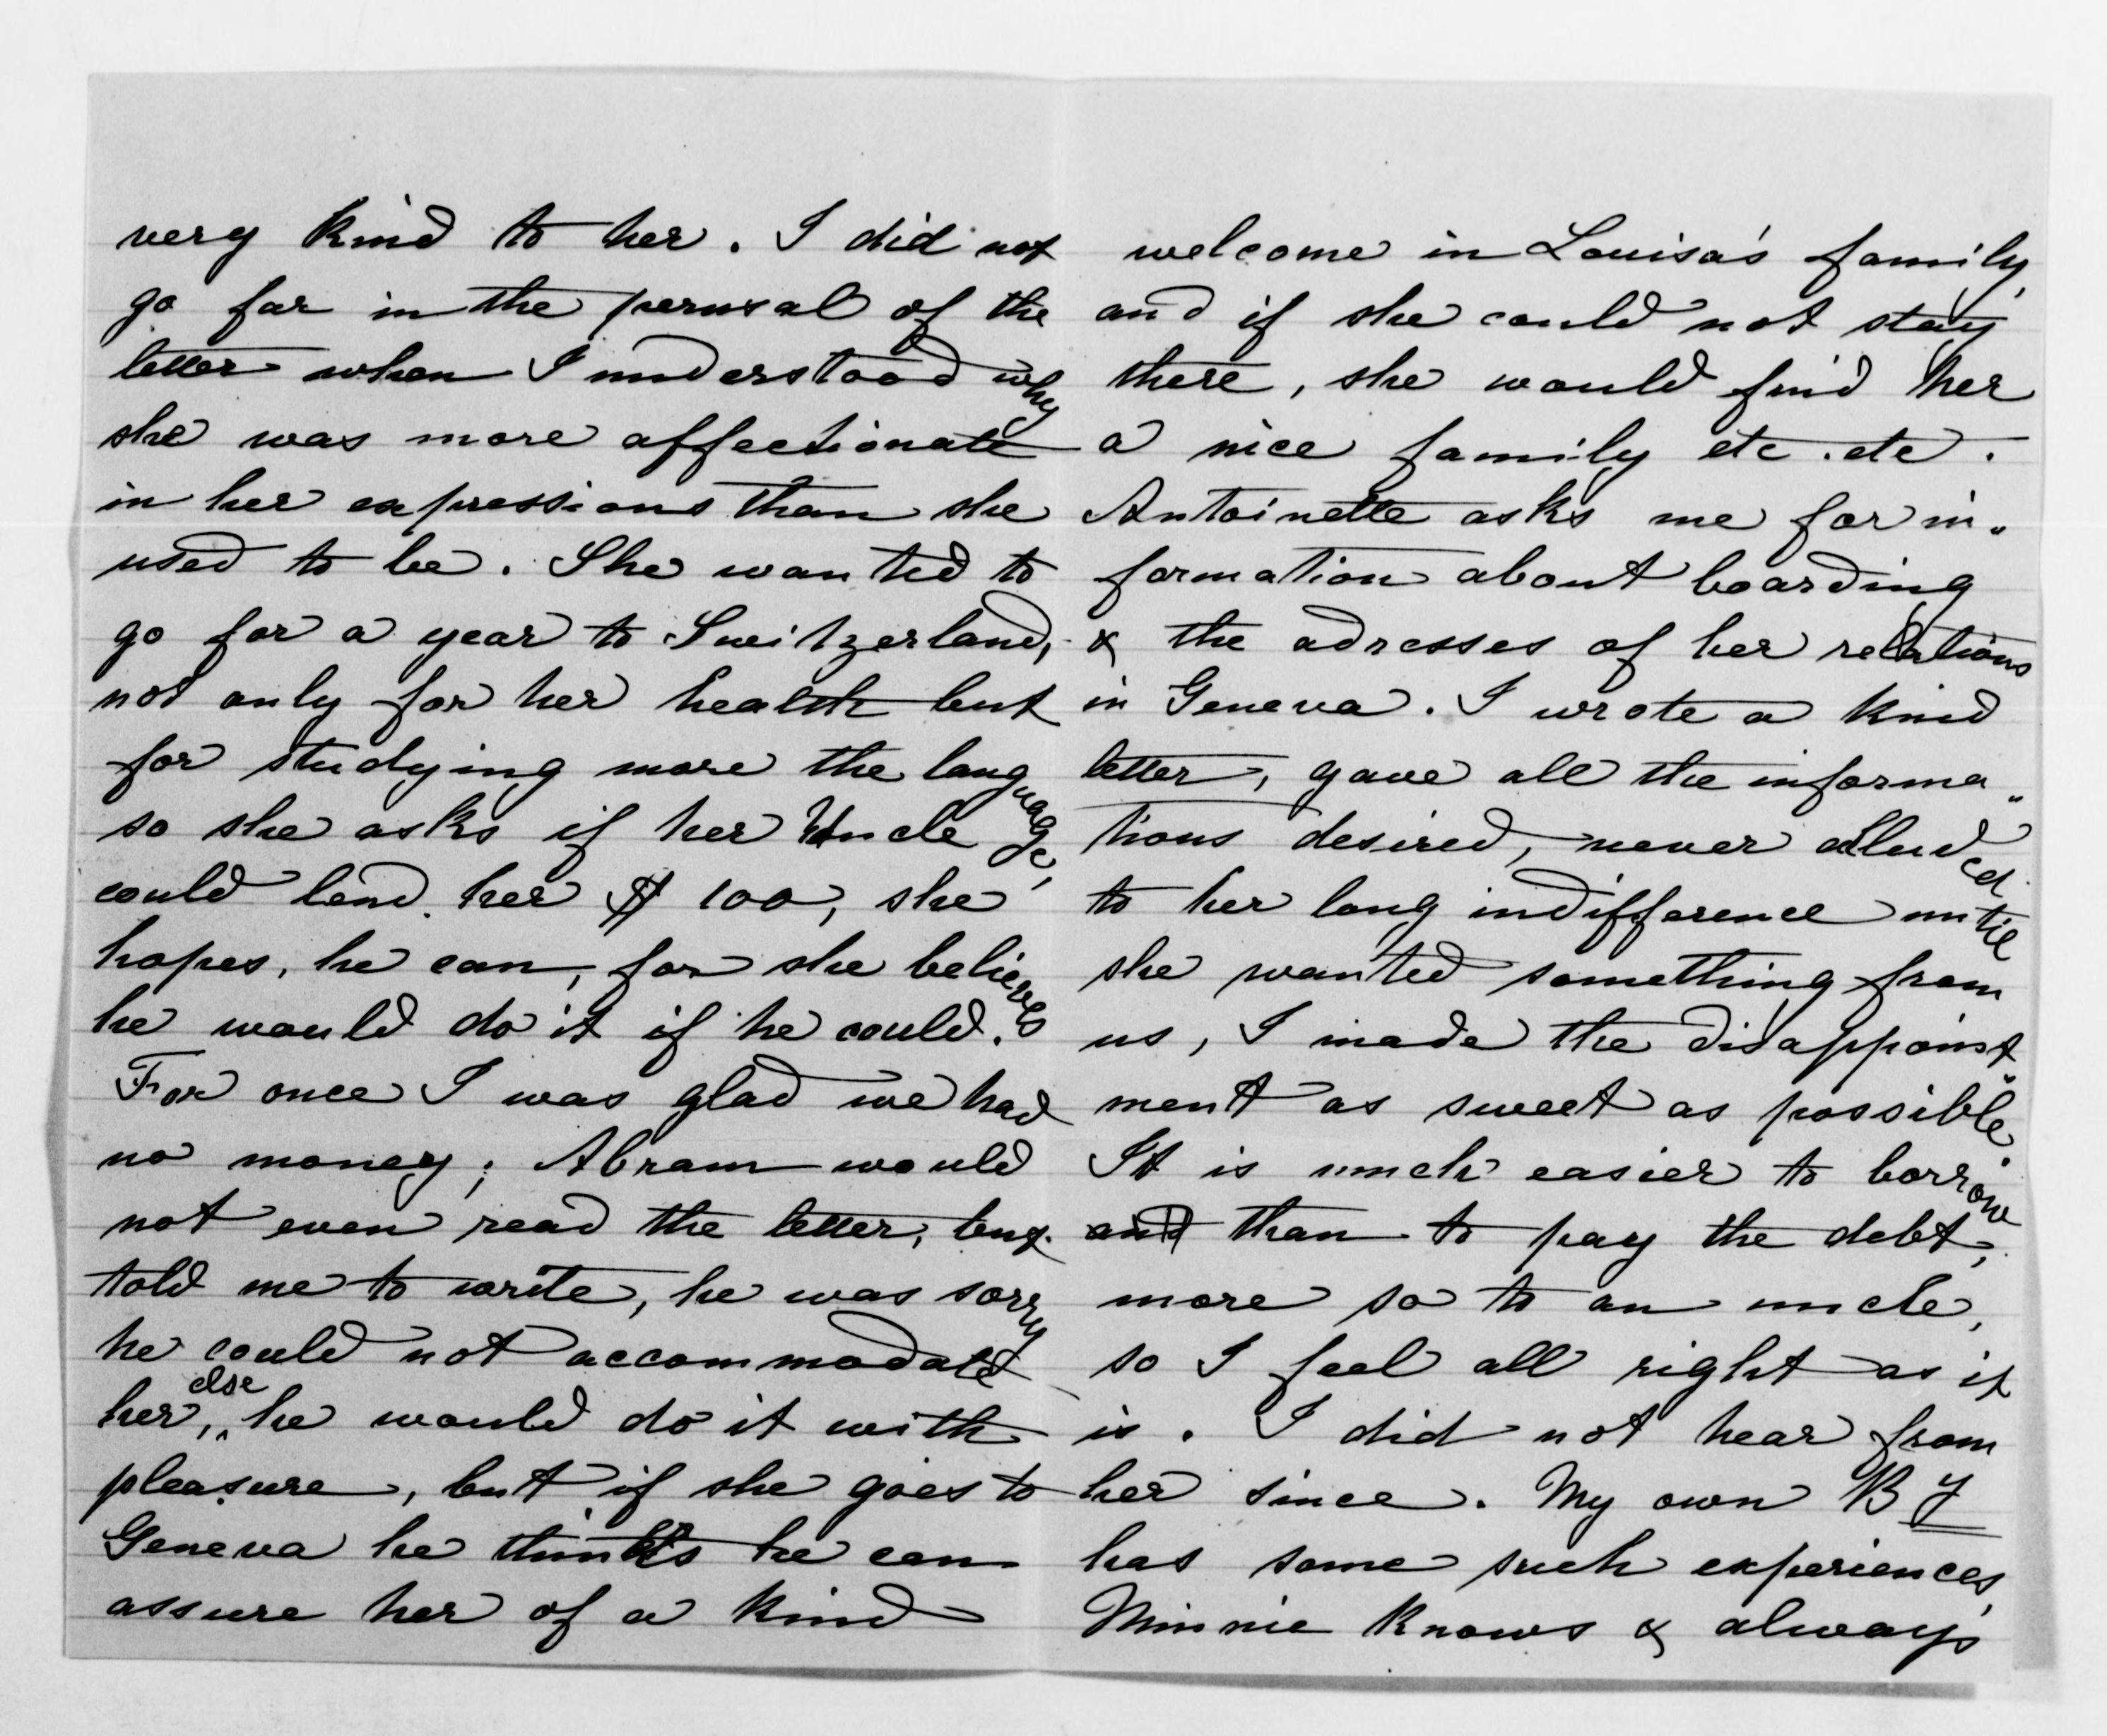 very kind to her. I did not
go far in the perusal of the
letter when I understood why
she was more affectionate
in her expressions than she
used to be. She wanted to
go for a year to Switzerland,
not only for her health but
for studying more the language,
so she asks if her Uncle
could lend her $ 100, she
hopes, he can, for she believes
he would do it if he could.
For once I was glad we had
no money; Abram would
not even read the letter, but
told me to write, he was sorry
he could not accommodate
her, else he would do it with
pleasure, but if she goes to
Geneva he thinks he can
assure her of a kind
welcome in Louisa's family,
and if she could not stay
there, she would find her
a nice family etc. etc.
Antoinette asks me for in„
formation about boarding
& the adresses of her relations
in Geneva. I wrote a kind
letter, gave all the informa„
tions desired, never alluded
to her long indifference until
she wanted something from
us, I made the disappoint„
ment as sweet as possible.
It is much easier to borrow
and than to pay the debt,
more so to an uncle,
so I feel all right as it
is. I did not hear from
her since. My own B J
has some such experiences,
Minnie knows & always